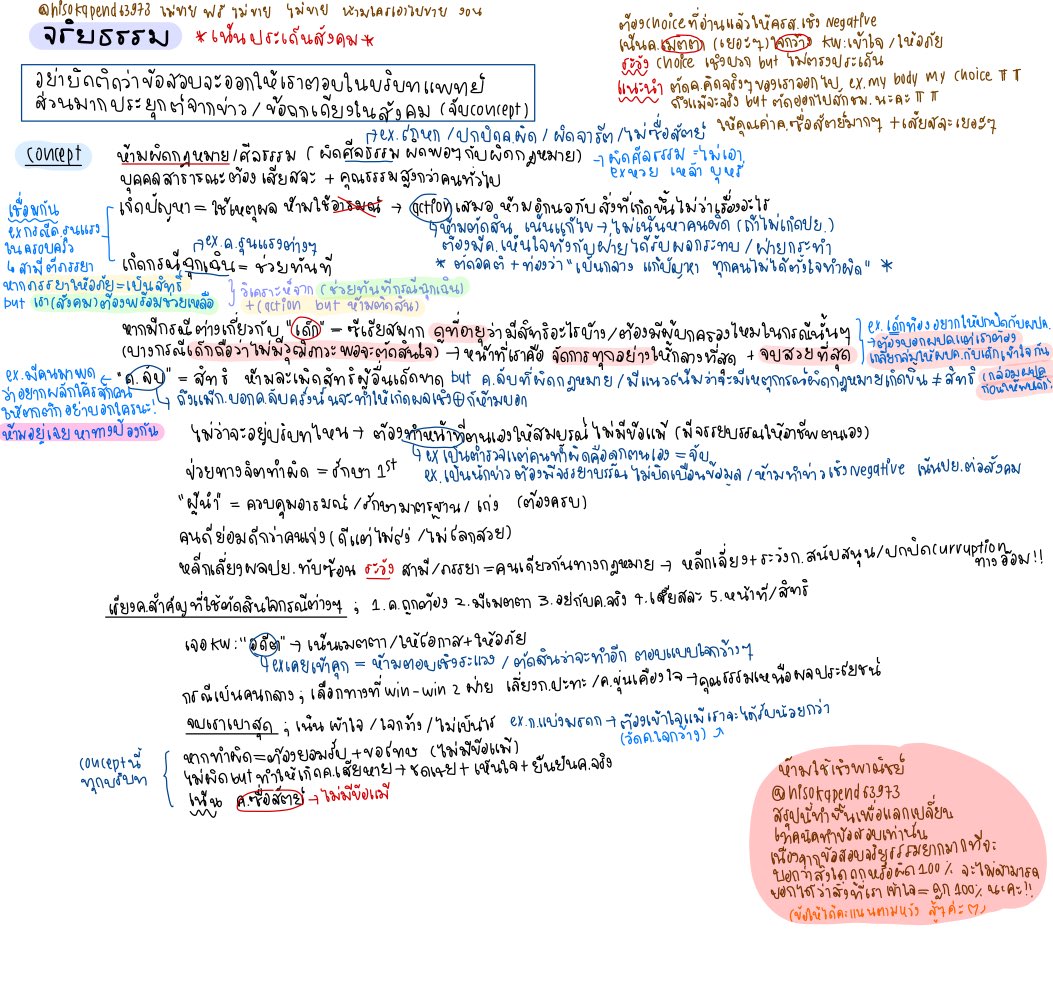 @hisokapend63973 ไม่ขาย ฟรี ไม่ขาย ไม่ขาย ห้ามใครเอาไปขาย งอน
จริยธรรม *เน้นประเด็นสังคม*
ต้องchoiceที่อ่านแล้วให้ครส.เชิง Negative
เน้นค.เมตตา (เยอะๆ) ใจกว้าง KW:เข้าใจ/ให้อภัย
ระวัง choice เชิงบวก but ไม่ตรงประเด็น
แนะนำ ตัดค.คิดจริงๆของเราออกไป, ex.my body my choice TT
ถึงแม้จะจริง but ตัดออกไปสักชม. นะคะ TT
ให้คุณค่าค.ซื่อสัตย์มากๆ + เสียสละเยอะๆ
อย่ายึดติดว่าข้อสอบจะออกให้เราตอบในบริบทแพทย์
ส่วนมากประยุกต์จากข่าว/ข้อถกเถียงในสังคม (จับconcept)
→ex.โกหก/ปกปิดค.ผิด/ผิดจารีต/ไม่ซื่อสัตย์
concept ห้ามผิดกฎหมาย/ศีลธรรม (ผิดศีลธรรม ผิดพอๆกับผิดกฎหมาย) →ผิดศีลธรรม =ไม่เอา
ex.หวย เหล้า บุหรี่
บุคคลสาธารณะต้อง เสียสละ + คุณธรรมสูงกว่าคนทั่วไป
เกิดปัญหา = ใช้เหตุผล ห้ามใช้อารมณ์ → action เสมอ ห้ามอึกอักกับสิ่งที่เกิดขึ้นไม่ว่าเรื่องอะไร
↳ห้ามตัดสิน, เน้นแก้ไข → ไม่เน้นหาคนผิด (ถ้าไม่เกิดปย.)
ต้องมีค.เห็นใจทั้งกับฝ่ายได้รับผลกระทบ/ฝ่ายกระทำ
* ตัดอคติ + ท่องว่า "เป็นกลาง แก้ปัญหา ทุกคนไม่ได้ตั้งใจทำผิด" *
→ex.ค.รุนแรงต่างๆ
เกิดกรณีฉุกเฉิน = ช่วยทันที
เชื่อมกัน
ex.กรณีค.รุนแรง
ในครอบครัว
↳ สามีตีภรรยา
หากภรรยาให้อภัย=เป็นสิทธิ์
but เรา(สังคม)ต้องพร้อมช่วยเหลือ
วิเคราะห์จาก (ช่วยทันทีกรณีฉุกเฉิน)
+(action but ห้ามตัดสิน)
หากมีกรณีต่างเกี่ยวกับ "เด็ก" = ซีเรียสมาก ดูที่อายุว่ามีสิทธิอะไรบ้าง/ต้องมีผู้ปกครองไหมในกรณีนั้นๆ
(บางกรณีเด็กถือว่าไม่มีวุฒิภาวะพอจะตัดสินใจ) → หน้าที่เราคือ จัดการทุกอย่างให้กลางที่สุด + จบสวยที่สุด
ex.เด็กท้องอยากให้ปกปิดกับผปค.
→ต้องบอกผปค.แต่เราต้อง
เกลี้ยกล่อมให้ผปค.กับเด็กเข้าใจกัน
"ค.ลับ" = สิทธิ ห้ามละเมิดสิทธิผู้อื่นเด็ดขาด but ค.ลับที่ผิดกฎหมาย/มีแนวโน้มว่าจะมีเหตุการณ์ผิดกฎหมายเกิดขึ้น ≠ สิทธิ
↳ ถึงแม้ก.บอกค.ลับครั้งนั้นจะทำให้เกิดผลเชิง⊕ก็ห้ามบอก
ex.มีคนมาพูด
ว่าอยากผลักใครสักคน
ให้ตกตึกอย่าบอกใครนะ!
ห้ามอยู่เฉย หาทางป้องกัน
ไม่ว่าจะอยู่บริบทไหน → ต้องทำหน้าที่ตนเองให้สมบูรณ์ ไม่มีข้อแม้ (มีจรรยาบรรณให้อาชีพตนเอง)
↳ ex.เป็นตำรวจแต่คนทำผิดคือลูกตนเอง =จับ
ex.เป็นนักข่าว ต้องมีจรรยาบรรณ ไม่บิดเบือนข้อมูล/ห้ามทำข่าวเชิง Negative เน้นปย.ต่อสังคม
ป่วยทางจิตทำผิด = รักษา 1st
"ผู้นำ" = ควบคุมอารมณ์/รักษามาตรฐาน/เก่ง (ต้องครบ)
คนดีย่อมดีกว่าคนเก่ง (ดีแต่ไม่โง่/ไม่โลกสวย)
หลีกเลี่ยงผลปย.ทับซ้อน ระวัง สามี/ภรรยา =คนเดียวกันทางกฎหมาย → หลีกเลี่ยง+ระวังก.สนับสนุน/ปกปิดcurruption
ทางอ้อม!!
เรียงค.สำคัญที่ใช้ตัดสินใจกรณีต่างๆ ; 1.ค.ถูกต้อง 2.มีเมตตา 3.อยู่กับค.จริง 4.เสียสละ 5.หน้าที่/สิทธิ
เจอ KW:"อดีต" → เน้นเมตตา/ให้โอกาส+ให้อภัย
↳ exเคยเข้าคุก = ห้ามตอบเชิงระแวง/ตัดสินว่าจะทำอีก ตอบแบบใจกว้างๆ
กรณีเป็นคนกลาง ; เลือกทางที่ win-win 2 ฝ่าย เลี่ยงก.ปะทะ/ค.ขุ่นเคืองใจ →คุณธรรมเหนือผลประโยชน์
จบเราเบาสุด ; เน้น เข้าใจ/ใจกว้าง/ไม่เป็นไร ex.ก.แบ่งมรดก → ต้องเข้าใจแม้เราจะได้รับน้อยกว่า
(วัดค.ใจกว้าง)
conceptนี้
ทุกบริบท
หากทำผิด=ต้องยอมรับ + ขอโทษ (ไม่มีข้อแม้)
ไม่ผิดbut ทำให้เกิดค.เสียหาย → ชดเชย + เห็นใจ + ยืนยันค.จริง
เน้น ค.ซื่อสัตย์ →ไม่มีข้อแม้
ห้ามใช้เชิงพาณิชย์
@hisokapend63973
สรุปนี้ทำขึ้นเพื่อแลกเปลี่ยน
เทคนิคทำข้อสอบเท่านั้น
เนื่องจากข้อสอบจริยธรรมยากมากที่จะ
บอกว่าสิ่งใดถูกหรือผิด 100% จะไม่สามารถ
บอกได้ว่าสิ่งที่เราเข้าใจ= ถูก 100% นะคะ!!
(ขอให้ได้คะแนนตามหวัง สู้ๆค่ะ)